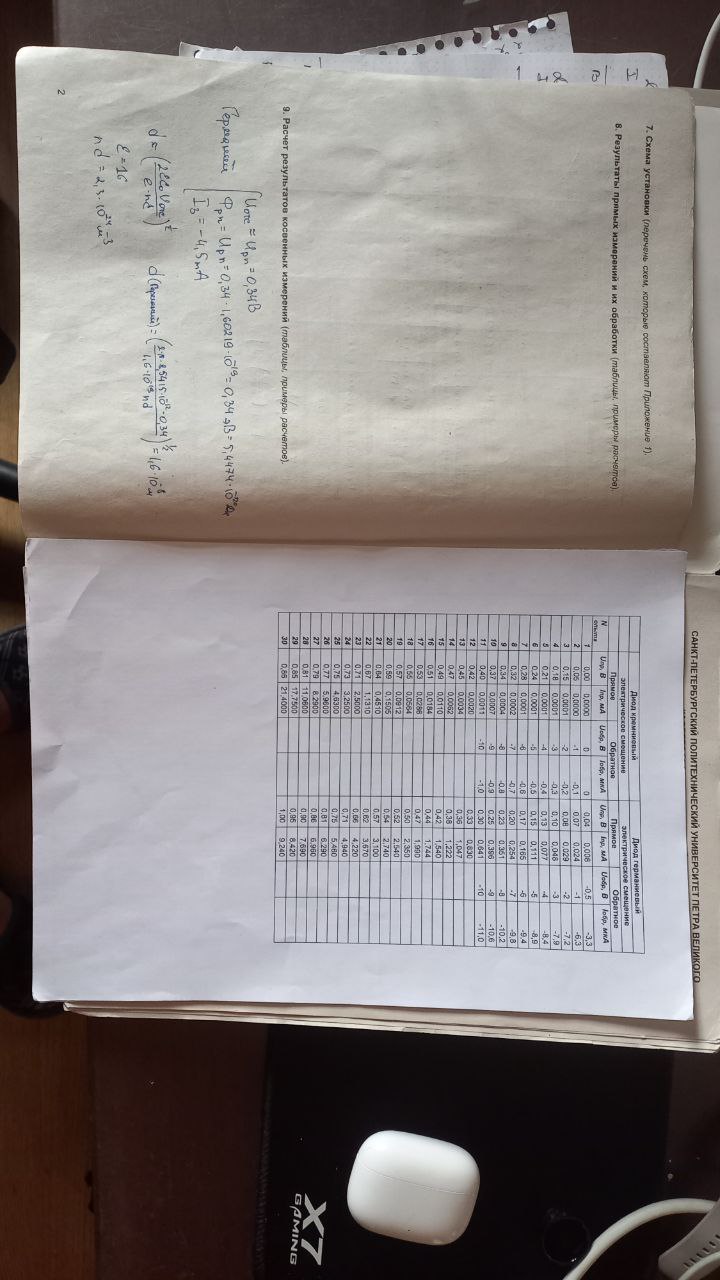 7. Схема установки (перечень схем, которые составляют Приложение 1).
8. Результаты прямых измерений и их обработки (таблицы, примеры расчетов).
9. Расчет результатов косвенных измерений (таблицы, примеры расчетов).
Германий
Uотс = Uрп = 0,34В
Фрп = Uрп = 0,34 · 1,60219·10^-19 = 0,34 эВ = 5,4474·10^-20 Дж
I3 = -4,5mA
d = (2εε0 Uотс / e·nd)^1/2
ε = 16
2
САНКТ-ПЕТЕРБУРГСКИЙ ПОЛИТЕХНИЧЕСКИЙ УНИВЕРСИТЕТ ПЕТРА ВЕЛИКОГО
Диод кремниевый Диод германиевый
электрическое смещение электрическое смещение
N опыта Прямое Обратное Прямое Обратное
Uпр, В Iпр, мА Uобр, В Iобр, мкА Uпр, В Iпр, мА Uобр, В Iобр, мкА
1 0,00 0,0000 0 0 0,04 0,006 -0,5 -3,3
2 0,05 0,0000 -1 -0,1 0,07 0,024 -1 -6,3
3 0,15 0,0001 -2 -0,2 0,08 0,029 -2 -7,2
4 0,18 0,0001 -3 -0,3 0,10 0,048 -3 -7,9
5 0,21 0,0001 -4 -0,4 0,13 0,077 -4 -8,4
6 0,24 0,0001 -5 -0,5 0,15 0,111 -5 -8,9
7 0,28 0,0001 -6 -0,6 0,17 0,165 -6 -9,4
8 0,32 0,0002 -7 -0,7 0,20 0,254 -7 -9,8
9 0,34 0,0004 -8 -0,8 0,23 0,351 -8 -10,2
10 0,37 0,0007 -9 -0,9 0,25 0,396 -9 -10,6
11 0,40 0,0011 -10 -1,0 0,30 0,641 -10 -11,0
12 0,42 0,0020 0,33 0,830
13 0,45 0,0034 0,36 1,047
14 0,47 0,0062 0,38 1,222
15 0,49 0,0110 0,42 1,540
16 0,51 0,0184 0,44 1,744
17 0,53 0,0286 0,47 1,990
18 0,55 0,0564 0,50 2,350
19 0,57 0,0912 0,52 2,540
20 0,59 0,1505 0,54 2,740
21 0,64 0,4510 0,57 3,100
22 0,67 1,1310 0,62 3,670
23 0,71 2,5000 0,66 4,220
24 0,73 3,2500 0,71 4,940
25 0,75 4,6300 0,75 5,460
26 0,77 5,9600 0,81 6,290
27 0,79 8,2900 0,86 6,960
28 0,81 11,0600 0,90 7,690
29 0,85 17,7500 0,95 8,420
30 0,86 21,4000 1,00 9,240
X7
GAMING